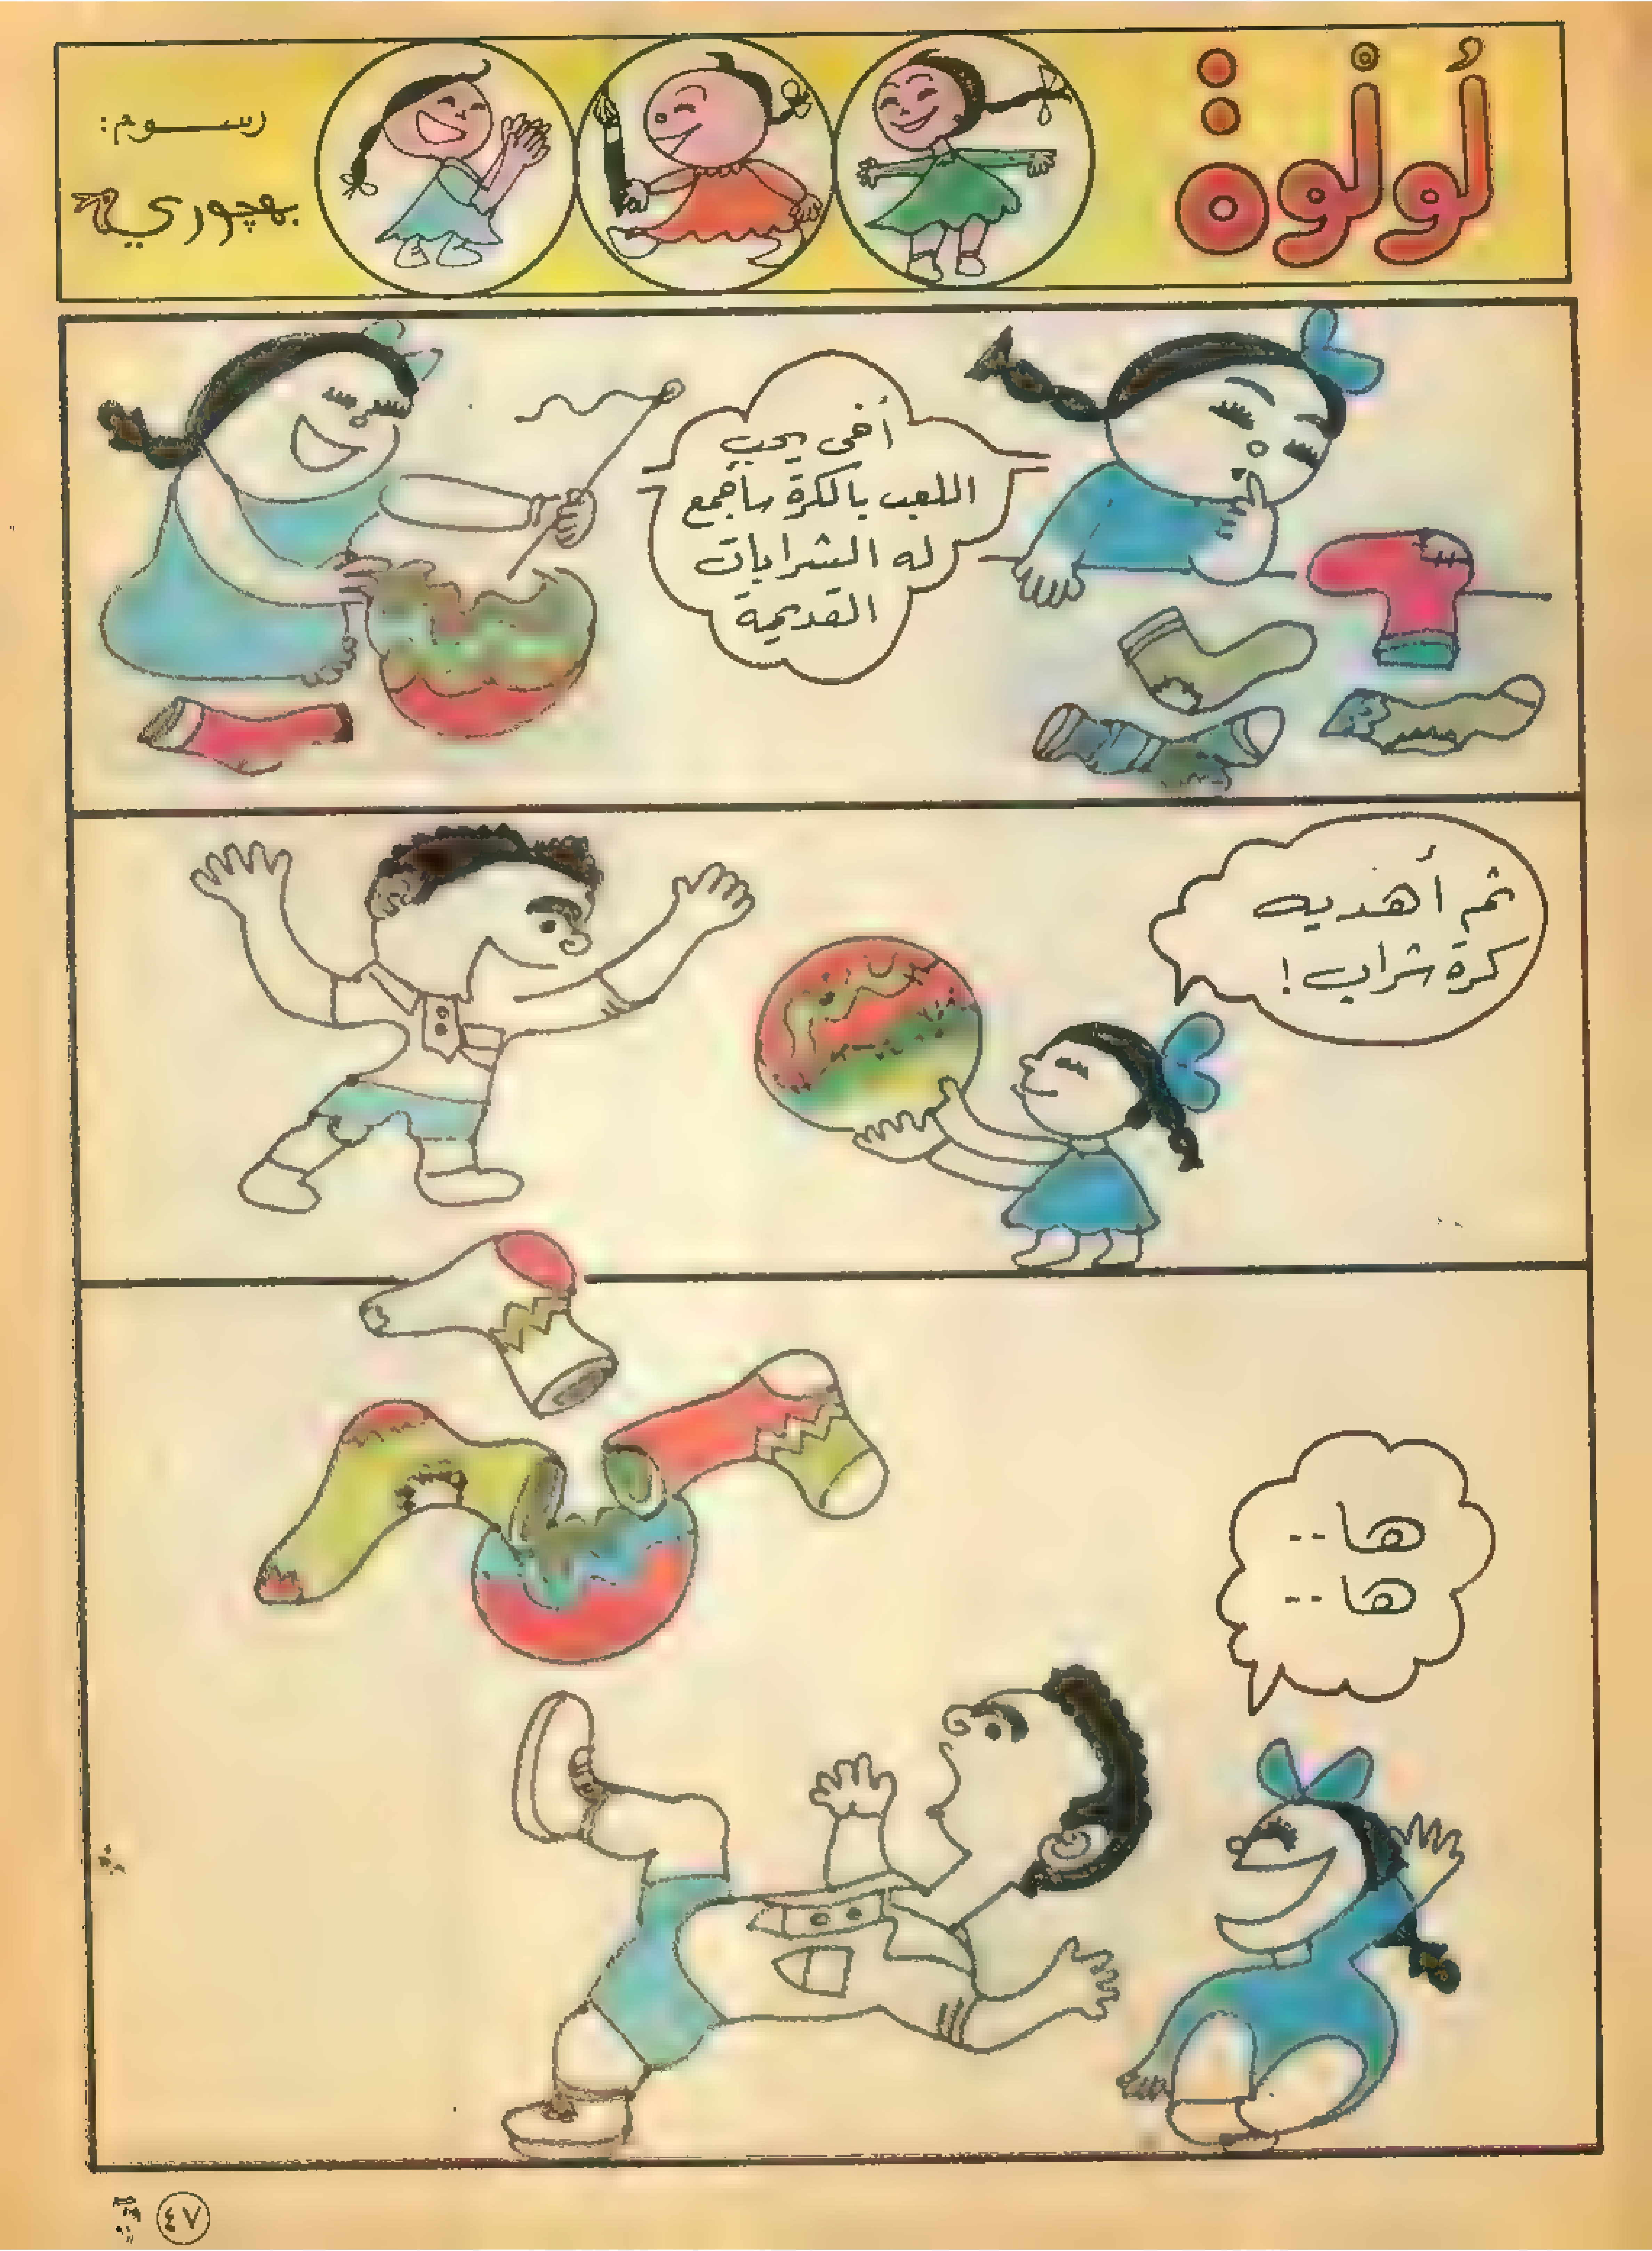 لُولْوة
رسوم:
بهجوري
أخى يحب
اللعب بالكرة سأجمع
له الشرابات
القديمة
ثم أهديه
كرة شراب !
ها--
ها--
٤٧